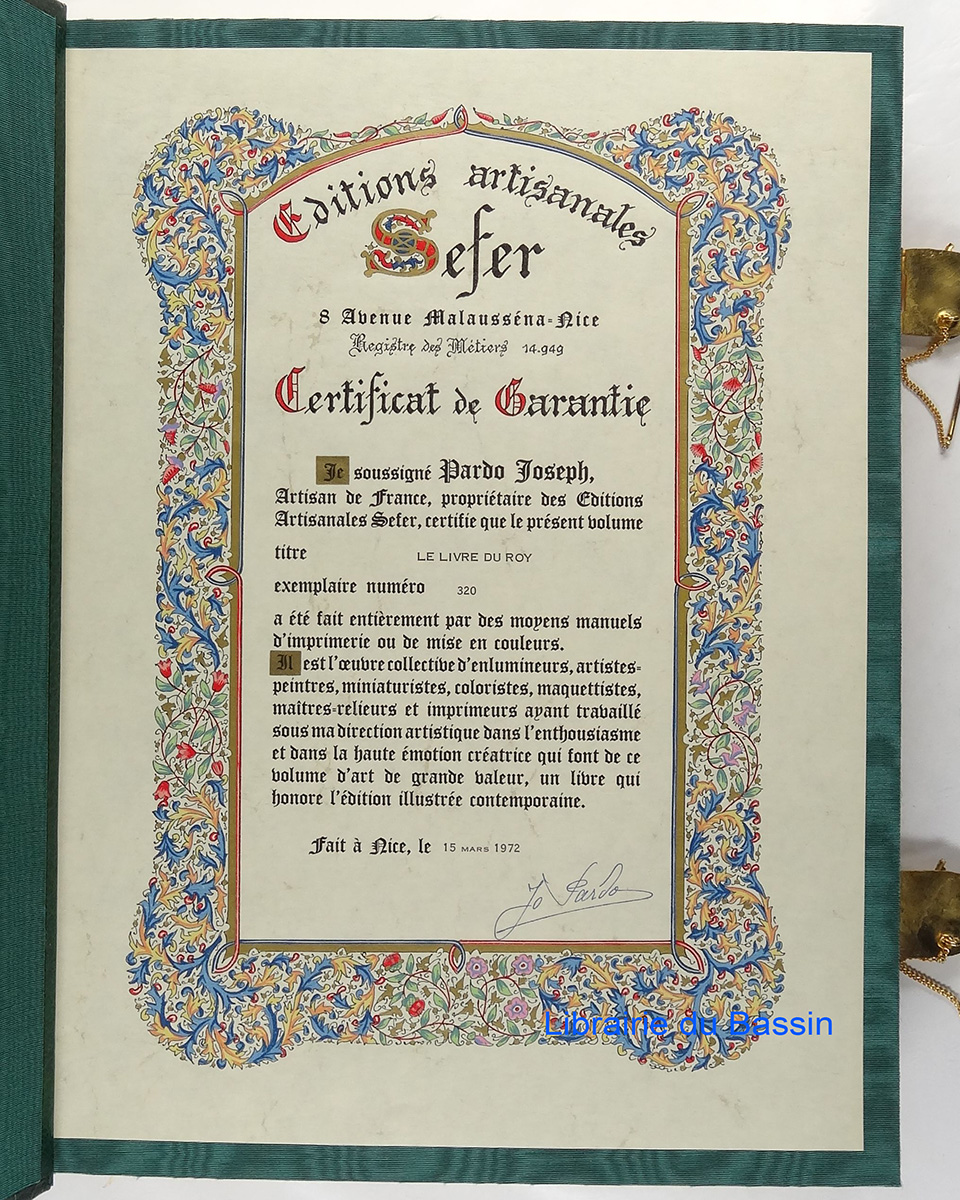 Editions artisanales
Sefer
8 Avenue Malausséna=Nice
Registre des Métiers 14.949
Certificat de Garantie
Je soussigné Pardo Joseph,
Artisan de France, propriétaire des Editions
Artisanales Sefer, certifie que le présent volume
titre LE LIVRE DU ROY
exemplaire numéro 320
a été fait entièrement par des moyens manuels
d'imprimerie ou de mise en couleurs.
Il est l'œuvre collective d'enlumineurs, artistes=
peintres, miniaturistes, coloristes, maquettistes,
maîtres=relieurs et imprimeurs ayant travaillé
sous ma direction artistique dans l'enthousiasme
et dans la haute émotion créatrice qui font de ce
volume d'art de grande valeur, un livre qui
honore l'édition illustrée contemporaine.
Fait à Nice, le 15 MARS 1972
Jo Pardo
Librairie du Bassin